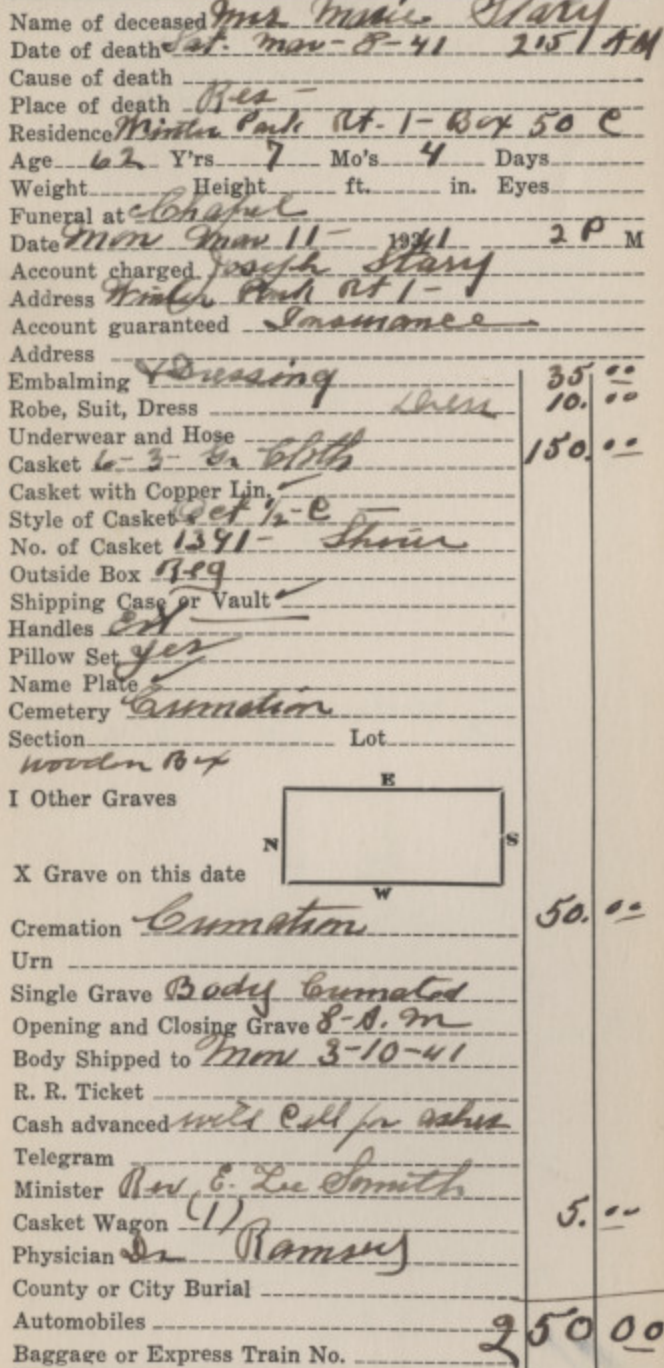 Name of deceased Mrs Marie Stary
Date of death Sat. Mar - 8 - 41 2 15 AM
Cause of death
Place of death Res -
Residence Winter Park Rt - 1 - Box 50 C
Age 62 Y'rs 7 Mo's 4 Days
Weight Height ft. in. Eyes
Funeral at Chapel
Date Mon Mar 11 - 1941 2 P M
Account charged Joseph Stary
Address Winter Park Rt 1 -
Account guaranteed Insurance
Address
Embalming & Dressing 35 00
Robe, Suit, Dress Dress 10. 00
Underwear and Hose
Casket 6 - 3 - Gr Cloth 150. 00
Casket with Copper Lin. ✓
Style of Casket Oct 1/2 - C
No. of Casket 1391 -
Outside Box Reg
Shipping Case or Vault ✓
Handles Ext
Pillow Set yes
Name Plate ✓
Cemetery Crumation
Section Lot
wooden Box
I Other Graves
E
N
S
X Grave on this date
W
Cremation Crumation 50. 00
Urn
Single Grave Body Crumated
Opening and Closing Grave 8 - A. M
Body Shipped to Mon 3 - 10 - 41
R. R. Ticket
Cash advanced will Call for ashes
Telegram
Minister Rev, E. Lee Smith
Casket Wagon (1) 5. 00
Physician Dr Ramsey
County or City Burial
Automobiles 250 00
Baggage or Express Train No.